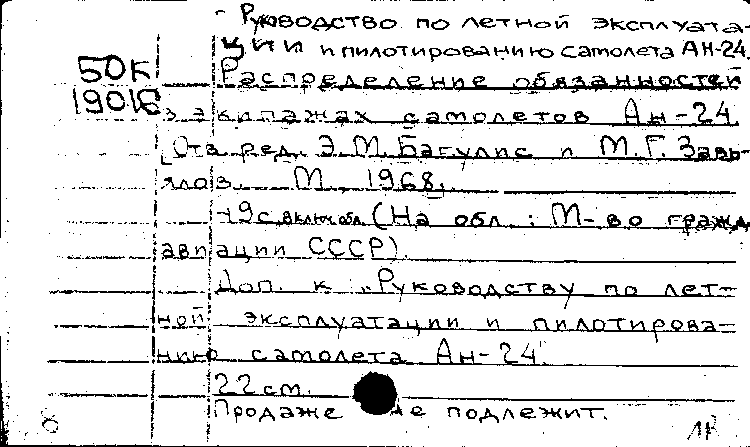 - Руководство по летной эксплуата-
ции и пилотированию самолета АН-24.
50К
1901
Распределение обязанностей
в экипажах самолетов Ан-24.
[Отв. ред. Э.М. Багулис и М.Г. Завь-
ялов. М., 1968.
19 с. включ. обл. (На обл.: М-во гражд.
авиации СССР).
Доп. к "Руководству по лет-
ной эксплуатации и пилотирова-
нию самолета Ан-24".
22 см.
Продаже не подлежит.
8
1К